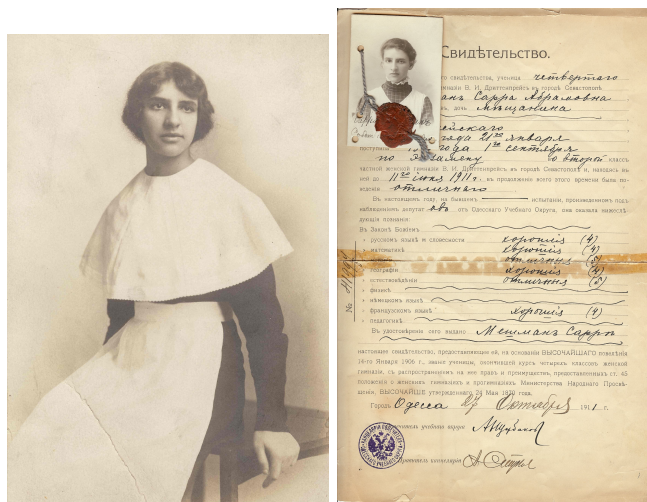 Свидѣтельство.
свидѣтельства, ученица четвертаго
гимназіи В. И. Дриттенпрейсъ въ городѣ Севастополѣ
Сарра Абрамовна
дочь Мѣщанина
года 21го января
года 1го сентября
по экзамену во второй классъ
частной женской гимназіи В. И. Дриттенпрейсъ въ городѣ Севастополѣ и, находясь въ
ней до 11го іюня 1911 г., въ продолженіе всего этого времени была по-
веденія отличнаго
Въ настоящемъ году, на бывшемъ испытаніи, произнесенномъ подъ
наблюденіемъ депутатовъ отъ Одесскаго Учебнаго Округа, она оказала нижеслѣ-
дующія познанія:
Въ Законѣ Божіемъ
„ русскомъ языкѣ и словесности хорошія (4)
„ математикѣ хорошія (4)
отличныя (5)
географіи хорошія (4)
„ естествовѣдѣніи отличныя (5)
„ физикѣ
„ нѣмецкомъ языкѣ
„ французскомъ языкѣ хорошія (4)
„ педагогикѣ
Въ удостовѣреніе сего выдано Мешманъ Саррѣ
настоящее свидѣтельство, предоставляющее ей, на основаніи ВЫСОЧАЙШАГО повелѣнія
14-го Января 1906 г., званіе ученицы, окончившей курсъ четырехъ классовъ женской
гимназіи, съ распространеніемъ на нее правъ и преимуществъ, предоставленныхъ ст. 45
положенія о женскихъ гимназіяхъ и прогимназіяхъ Министерства Народнаго Просвѣ-
щенія, ВЫСОЧАЙШЕ утвержденнаго 24 Мая 1870 года.
Городъ Одесса 27 Октября 1911 г.
учебнаго округа
Правитель канцеляріи